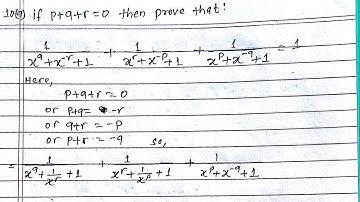 10(a) if p+q+r=0 then prove that!
1/(x^q+x^-r+1) + 1/(x^r+x^-p+1) + 1/(x^p+x^-q+1) = 1
Here,
p+q+r=0
or p+q= -r
or q+r=-p
or p+r=-q so,
= 1/(x^q+1/x^r+1) + 1/(x^r+1/x^p+1) + 1/(x^p+x^-q+1)